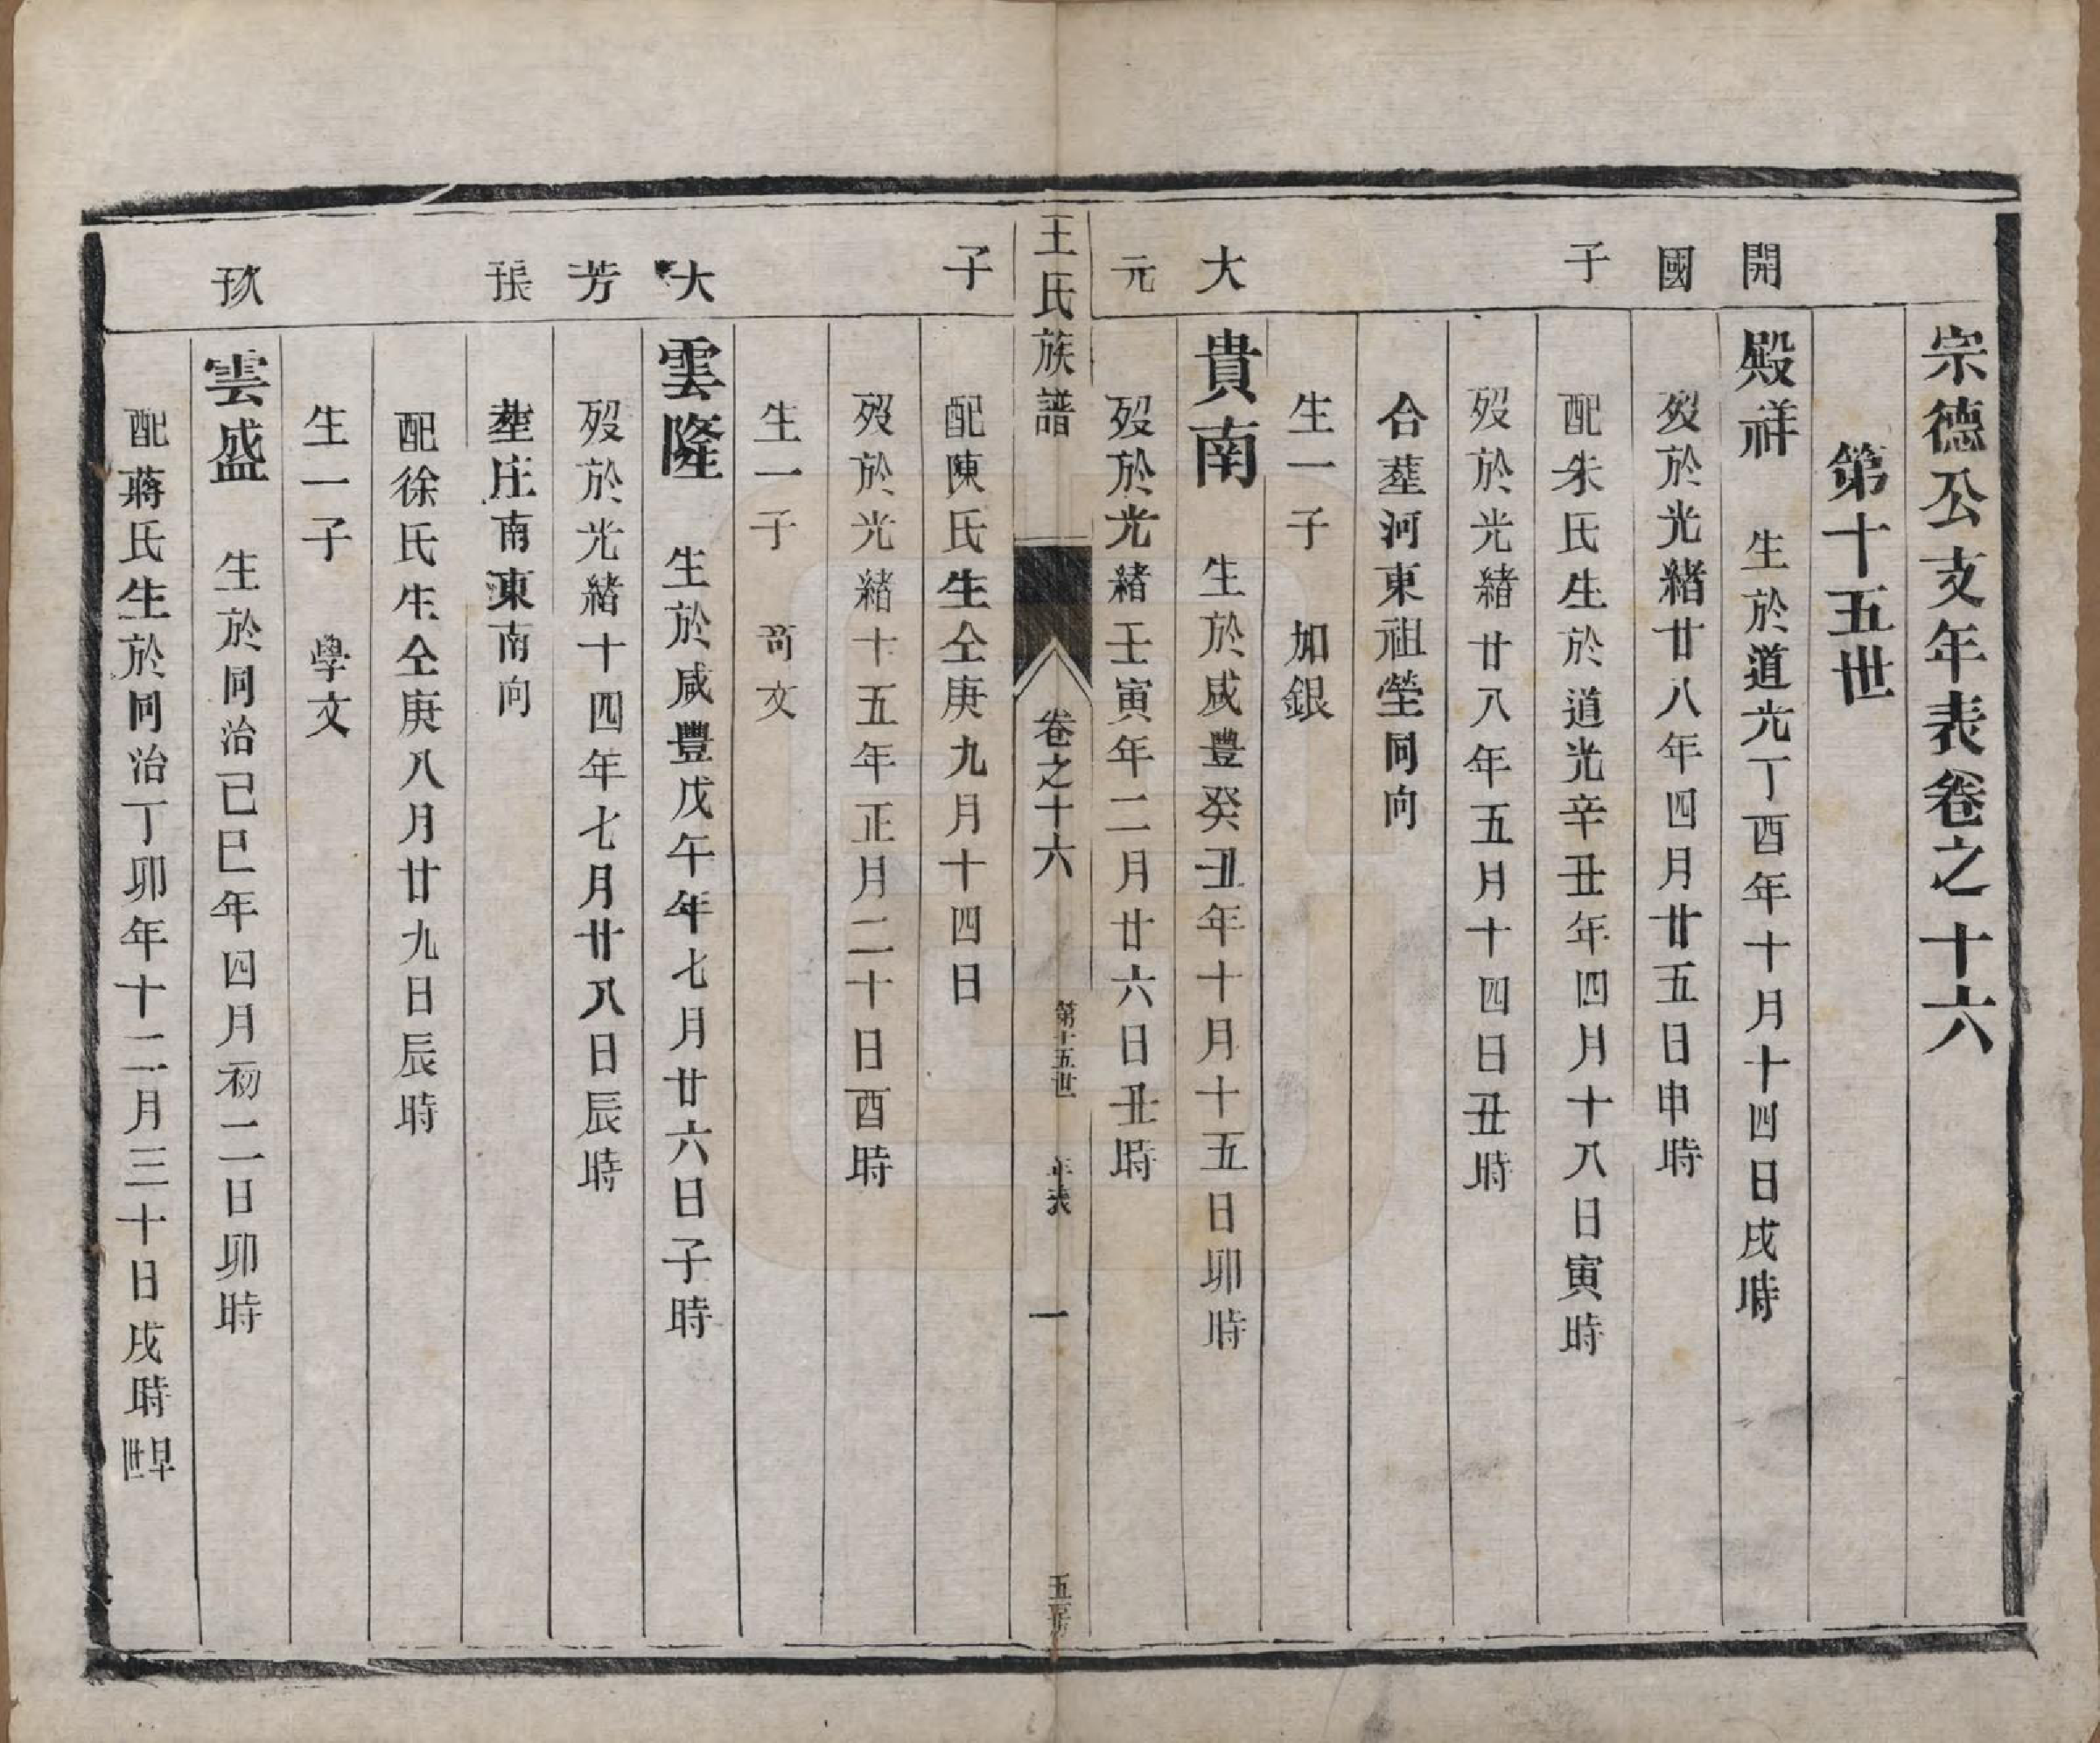 宗德公支年表卷之十六
第十五世
開 殿祥 生於道光丁酉年十月十四日戌時
國 歿於光緒廿八年四月廿五日申時
子 配朱氏生於道光辛丑年四月十八日寅時
歿於光緒廿八年五月十四日丑時
合塟河東祖塋同向
生一子 加銀
大 貴南 生於咸豐癸丑年十月十五日卯時
元 歿於光緒壬寅年二月廿六日丑時
王氏族譜 卷之十六 第十五世 年表 一 五房
子 配陳氏生仝庚九月十四日
歿於光緒十五年正月二十日酉時
生一子 尚文
大 雲隆 生於咸豐戊午年七月廿六日子時
芳 歿於光緒十四年七月廿八日辰時
塟庄南東南向
配徐氏生仝庚八月廿九日辰時
生一子 學文
雲盛 生於同治己巳年四月初二日卯時
配蔣氏生於同治丁卯年十二月三十日戌時早世